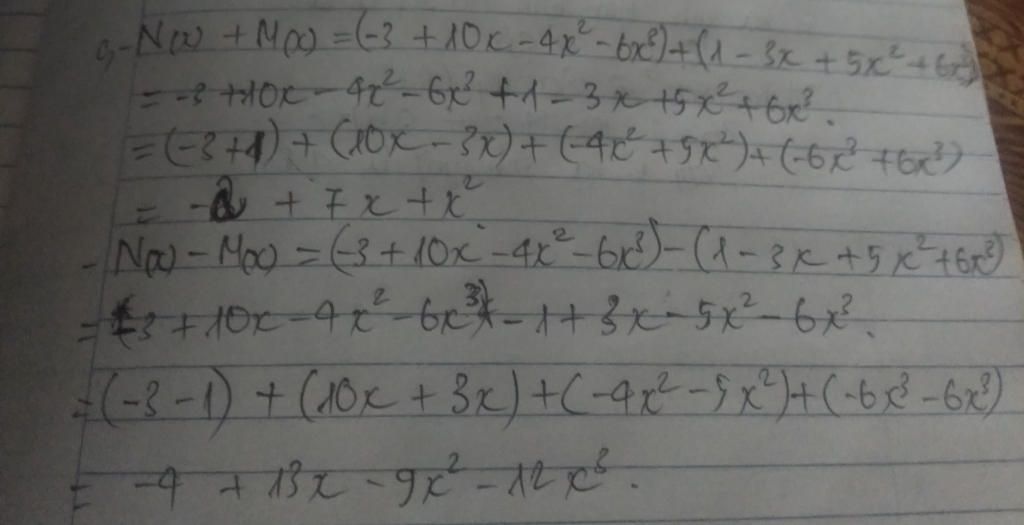 a, - N(x) + M(x) = (-3 + 10x - 4x² - 6x³) + (1 - 3x + 5x² + 6x³)
= -3 + 10x - 4x² - 6x³ + 1 - 3x + 5x² + 6x³.
= (-3 + 1) + (10x - 3x) + (-4x² + 5x²) + (-6x³ + 6x³)
= -2 + 7x + x²
- N(x) - M(x) = (-3 + 10x - 4x² - 6x³) - (1 - 3x + 5x² + 6x³)
= -3 + 10x - 4x² - 6x³ - 1 + 3x - 5x² - 6x³.
= (-3 - 1) + (10x + 3x) + (-4x² - 5x²) + (-6x³ - 6x³)
= -4 + 13x - 9x² - 12x³.